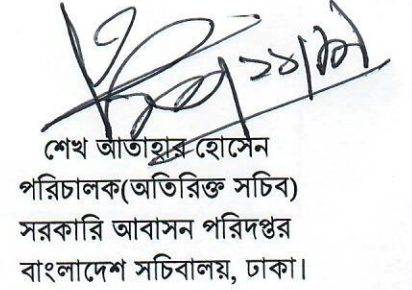 শেখ আতাহার হোসেন
পরিচালক(অতিরিক্ত সচিব)
সরকারি আবাসন পরিদপ্তর
বাংলাদেশ সচিবালয়, ঢাকা।